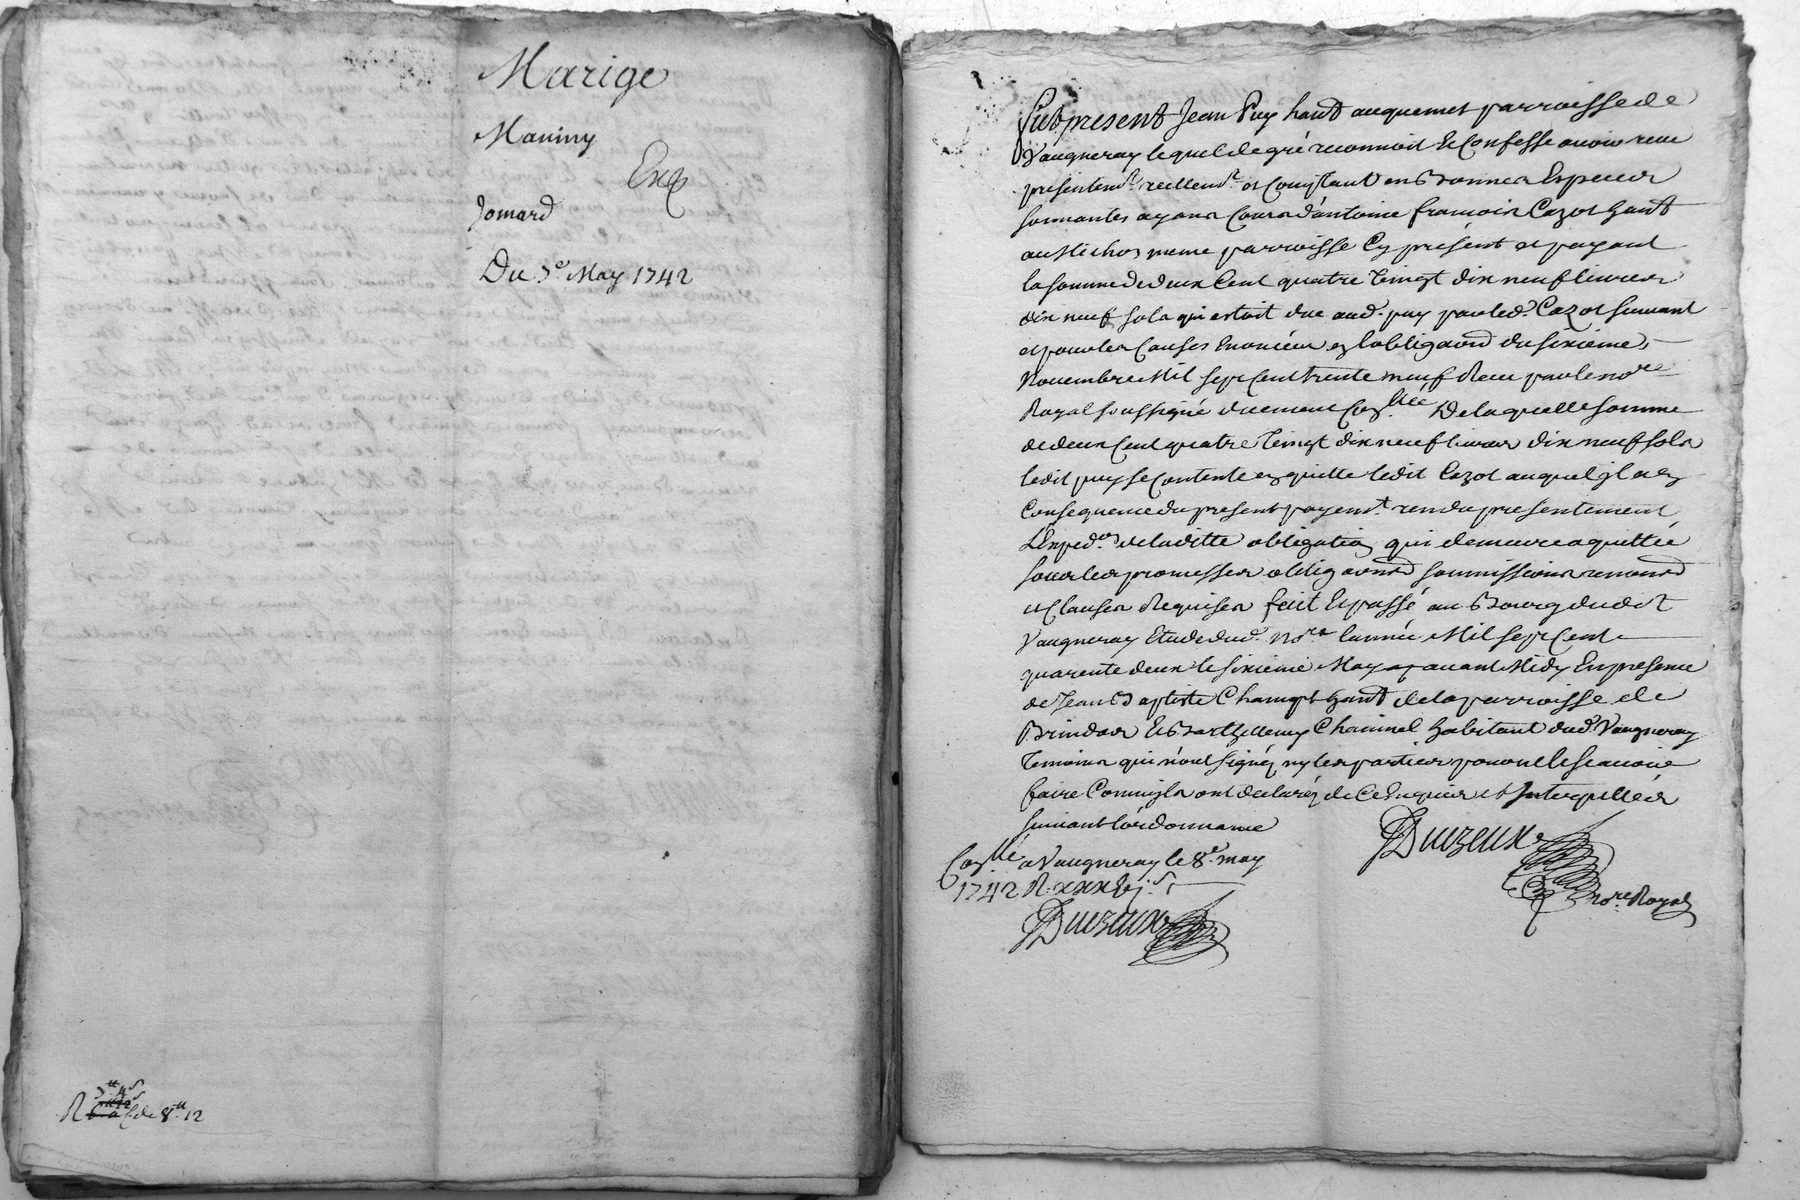 Marige
Maniny
Exp
Jomard
Du 3e May 1742
R de 8tt 12
Fut present Jean Puy habt auquemet parroisse de
Vaugneray lequel de gré reconnoit et Confesse avoir receu
presentemt. reellemt. et Comptant en Bonnes Especes
sonnantes ayans Cours d'antoine francois Cazot habt
au Michos meme parroisse Cy présent et payant
la somme de deux Cent quatre Vingt dix neuf livres
dix neuf sols qui estoit due aud. puy par led. Cazot suivant
et pour les Causes Enoncées en l'obligaond du sixieme
Novembre Mil sept Cent trente neuf Receu par le nore
Royal soussigné duement Conllée De laquelle somme
de deux Cent quatre Vingt dix neuf livres dix neuf sols
ledit puy se Contente en quitte ledit Cazot auquel il a en
Consequence du present payemt. rendu presentement
L'Exped.on de laditte obligation qui demeure aquittée
sous les promesses obligaons soumissions renonons
et Clauses Requises fait Et passé au Bourg dudit
Vaugneray Etude dud. nore l'année Mil sept Cent
quarente deux le sixieme May apavant Midy En presence
de Jean Baptiste Champt habt de la parroisse de
Brindas Et Barthelemy Chainel habitant dud. Vaugneray
Temoins qui n'ont signéz ny les parties pour ne le scavoir
faire Comm'ils ont declaréz de Ce Enquis et Interpellés
suivant l'ordonnance
Conllé a Vaugneray le 8e. may
1742 R. xxxvjs.
Duezeux
Duezeux
nore Royal